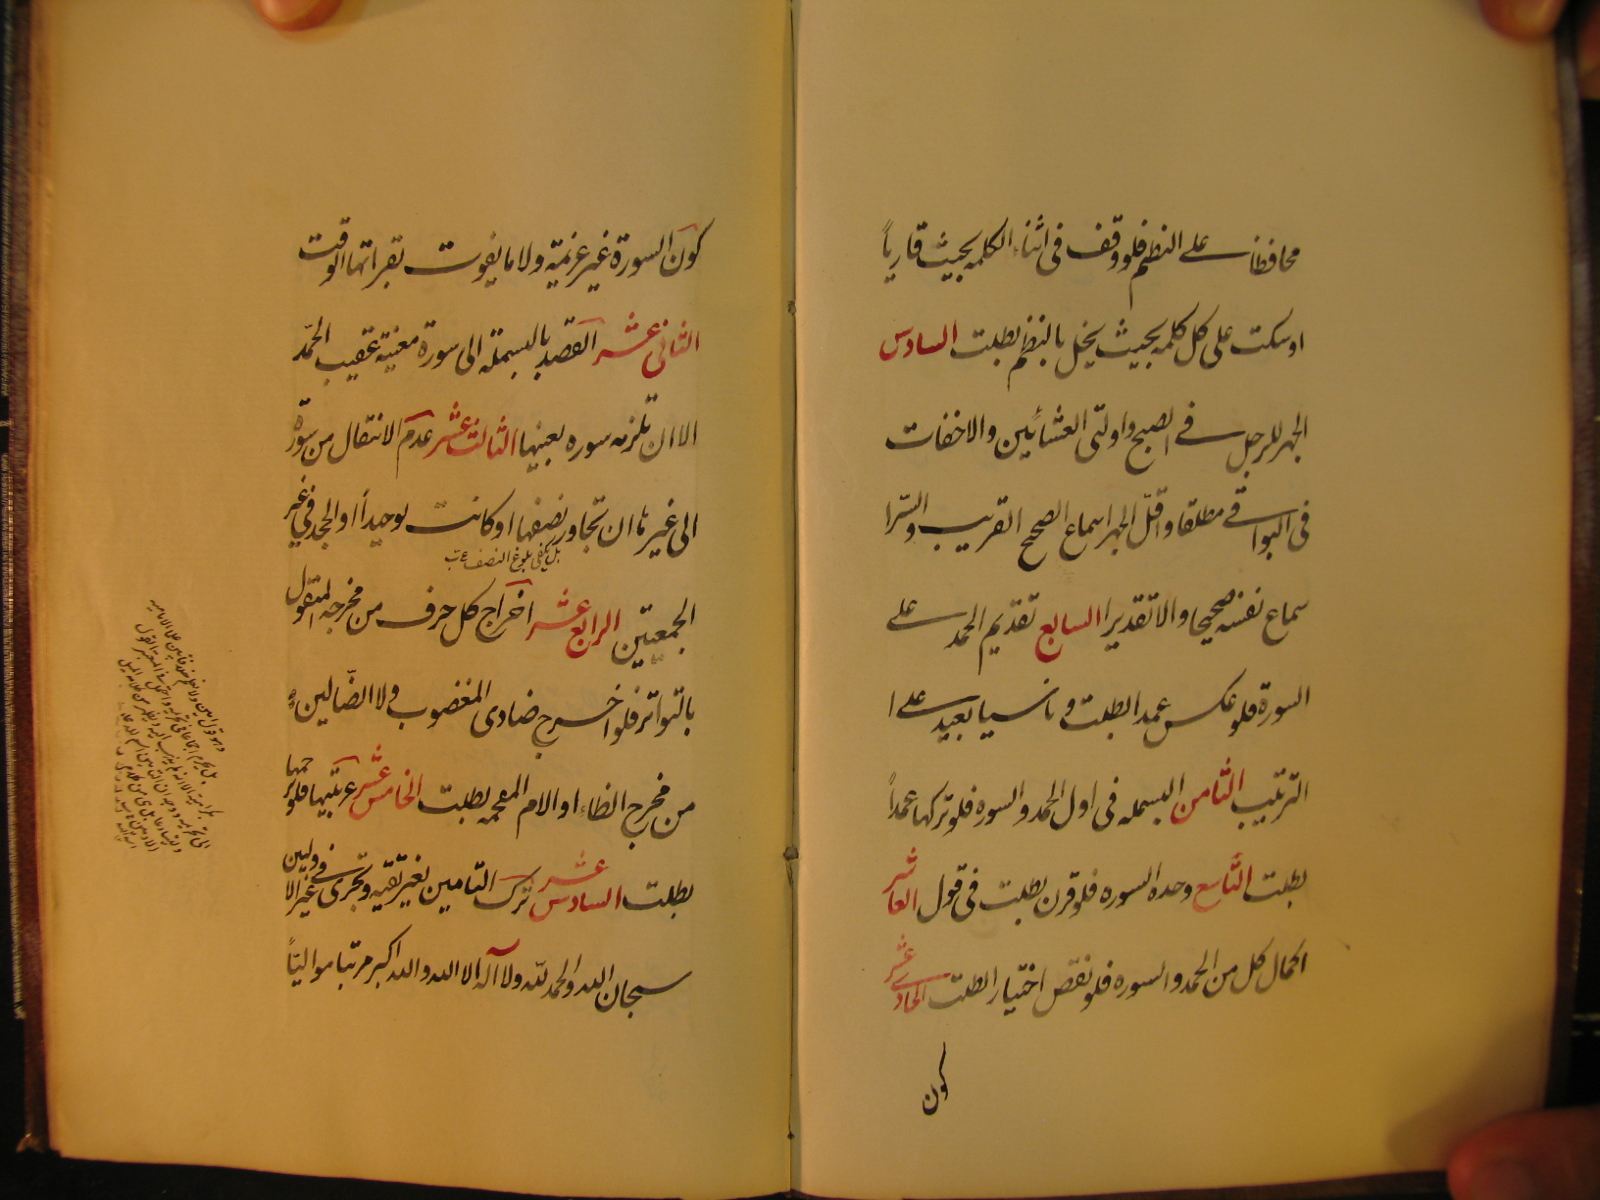 محافظا على النظم فلو وقف فى اثناء الكلمه بحيث قارياً
او سكت على كل كلمه بحيث يخل بالنظم بطلت السادس
الجهر للرجل فى الصبح و اولتى العشائين والاخفات
فى البواقى مطلقا و اقلّ الجهر اسماع الصحيح القريب و السّرا
سماع نفسه صحيحا و الا تقديرا السابع تقديم الحمد على
السورة فلو عكس عمدا بطلت و ناسيا بعيد على ا
الترتيب الثامن البسمله فى اول الحمد و السوره فلو تركها عمداً
بطلت التاسع وحده السوره فلو قرن بطلت فى قول العاشر
اكمال كل من الحمد و السوره فلو نقص اختيارا بطلت الحادى عشر
كون
كون السورة غير عزيمة ولا ما يفوت بقرائتها الوقت
الثانى عشر القصد بالبسملة الى سورة معنية عقيب الحمد
الا ان تلزمه سوره بعينها الثالث عشر عدم الانتقال من سورة
الى غيرها ان تجاوز نصفها او كانت توحيداً او الجحد فى غير
بل يكفى بلوغ النصف
الجمعتين الرابع عشر اخراج كل حرف من مخرجه المنقول
بالتواتر فلو اخرج ضادى المغضوب ولا الضّالين
من مخرج الظاء او الام المعجمه بطلت الخامس عشر عربيتها فلو ترجمها
بطلت السادس عشر ترك التامين لغير تقيه و تجزى فى غير الاوليين
سبحان الله و الحمد لله ولا آله الا الله و الله اكبر مرتبا مواليّاً